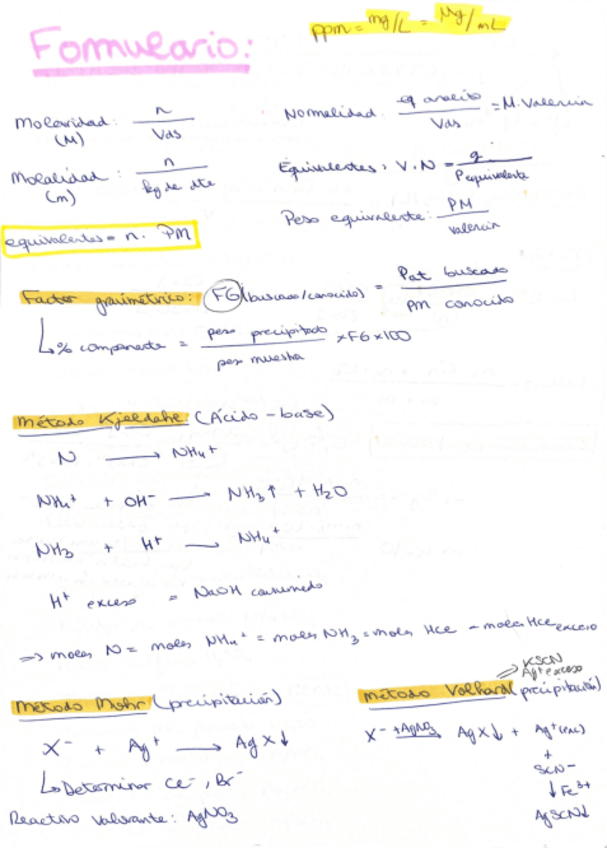 ppm = mg/L = Mg/mL
Formulario:
Molaridad: n / Vds
(M)
Normalidad: eq analito / Vds = M. Valencia
Molalidad: n / kg de dte
(m)
Equivalentes: V.N = g / Pequivalente
Peso equivalente: PM / valencia
equivalentes = n. PM
Factor gravimétrico: FG (buscado/conocido) = Pat buscado / PM conocido
↳ % componente = peso precipitado / peso muestra x FG x 100
Método Kjeldahl (Ácido-base)
N ⟶ NH4+
NH4+ + OH- ⟶ NH3↑ + H2O
NH3 + H+ ⟶ NH4+
H+ exceso = NaOH consumido
⇒ moles N = moles NH4+ = moles NH3 = moles HCl - moles HCl exceso
Método Mohr (precipitación)
X- + Ag+ ⟶ AgX↓
↳ Determinar Cl-, Br-
Reactivo valorante: AgNO3
⇒ KSCN
Ag+ exceso
Método Volhard (precipitación)
X- +AgNO3⟶ AgX↓ + Ag+(exc)
+
SCN-
↓ Fe3+
AgSCN↓